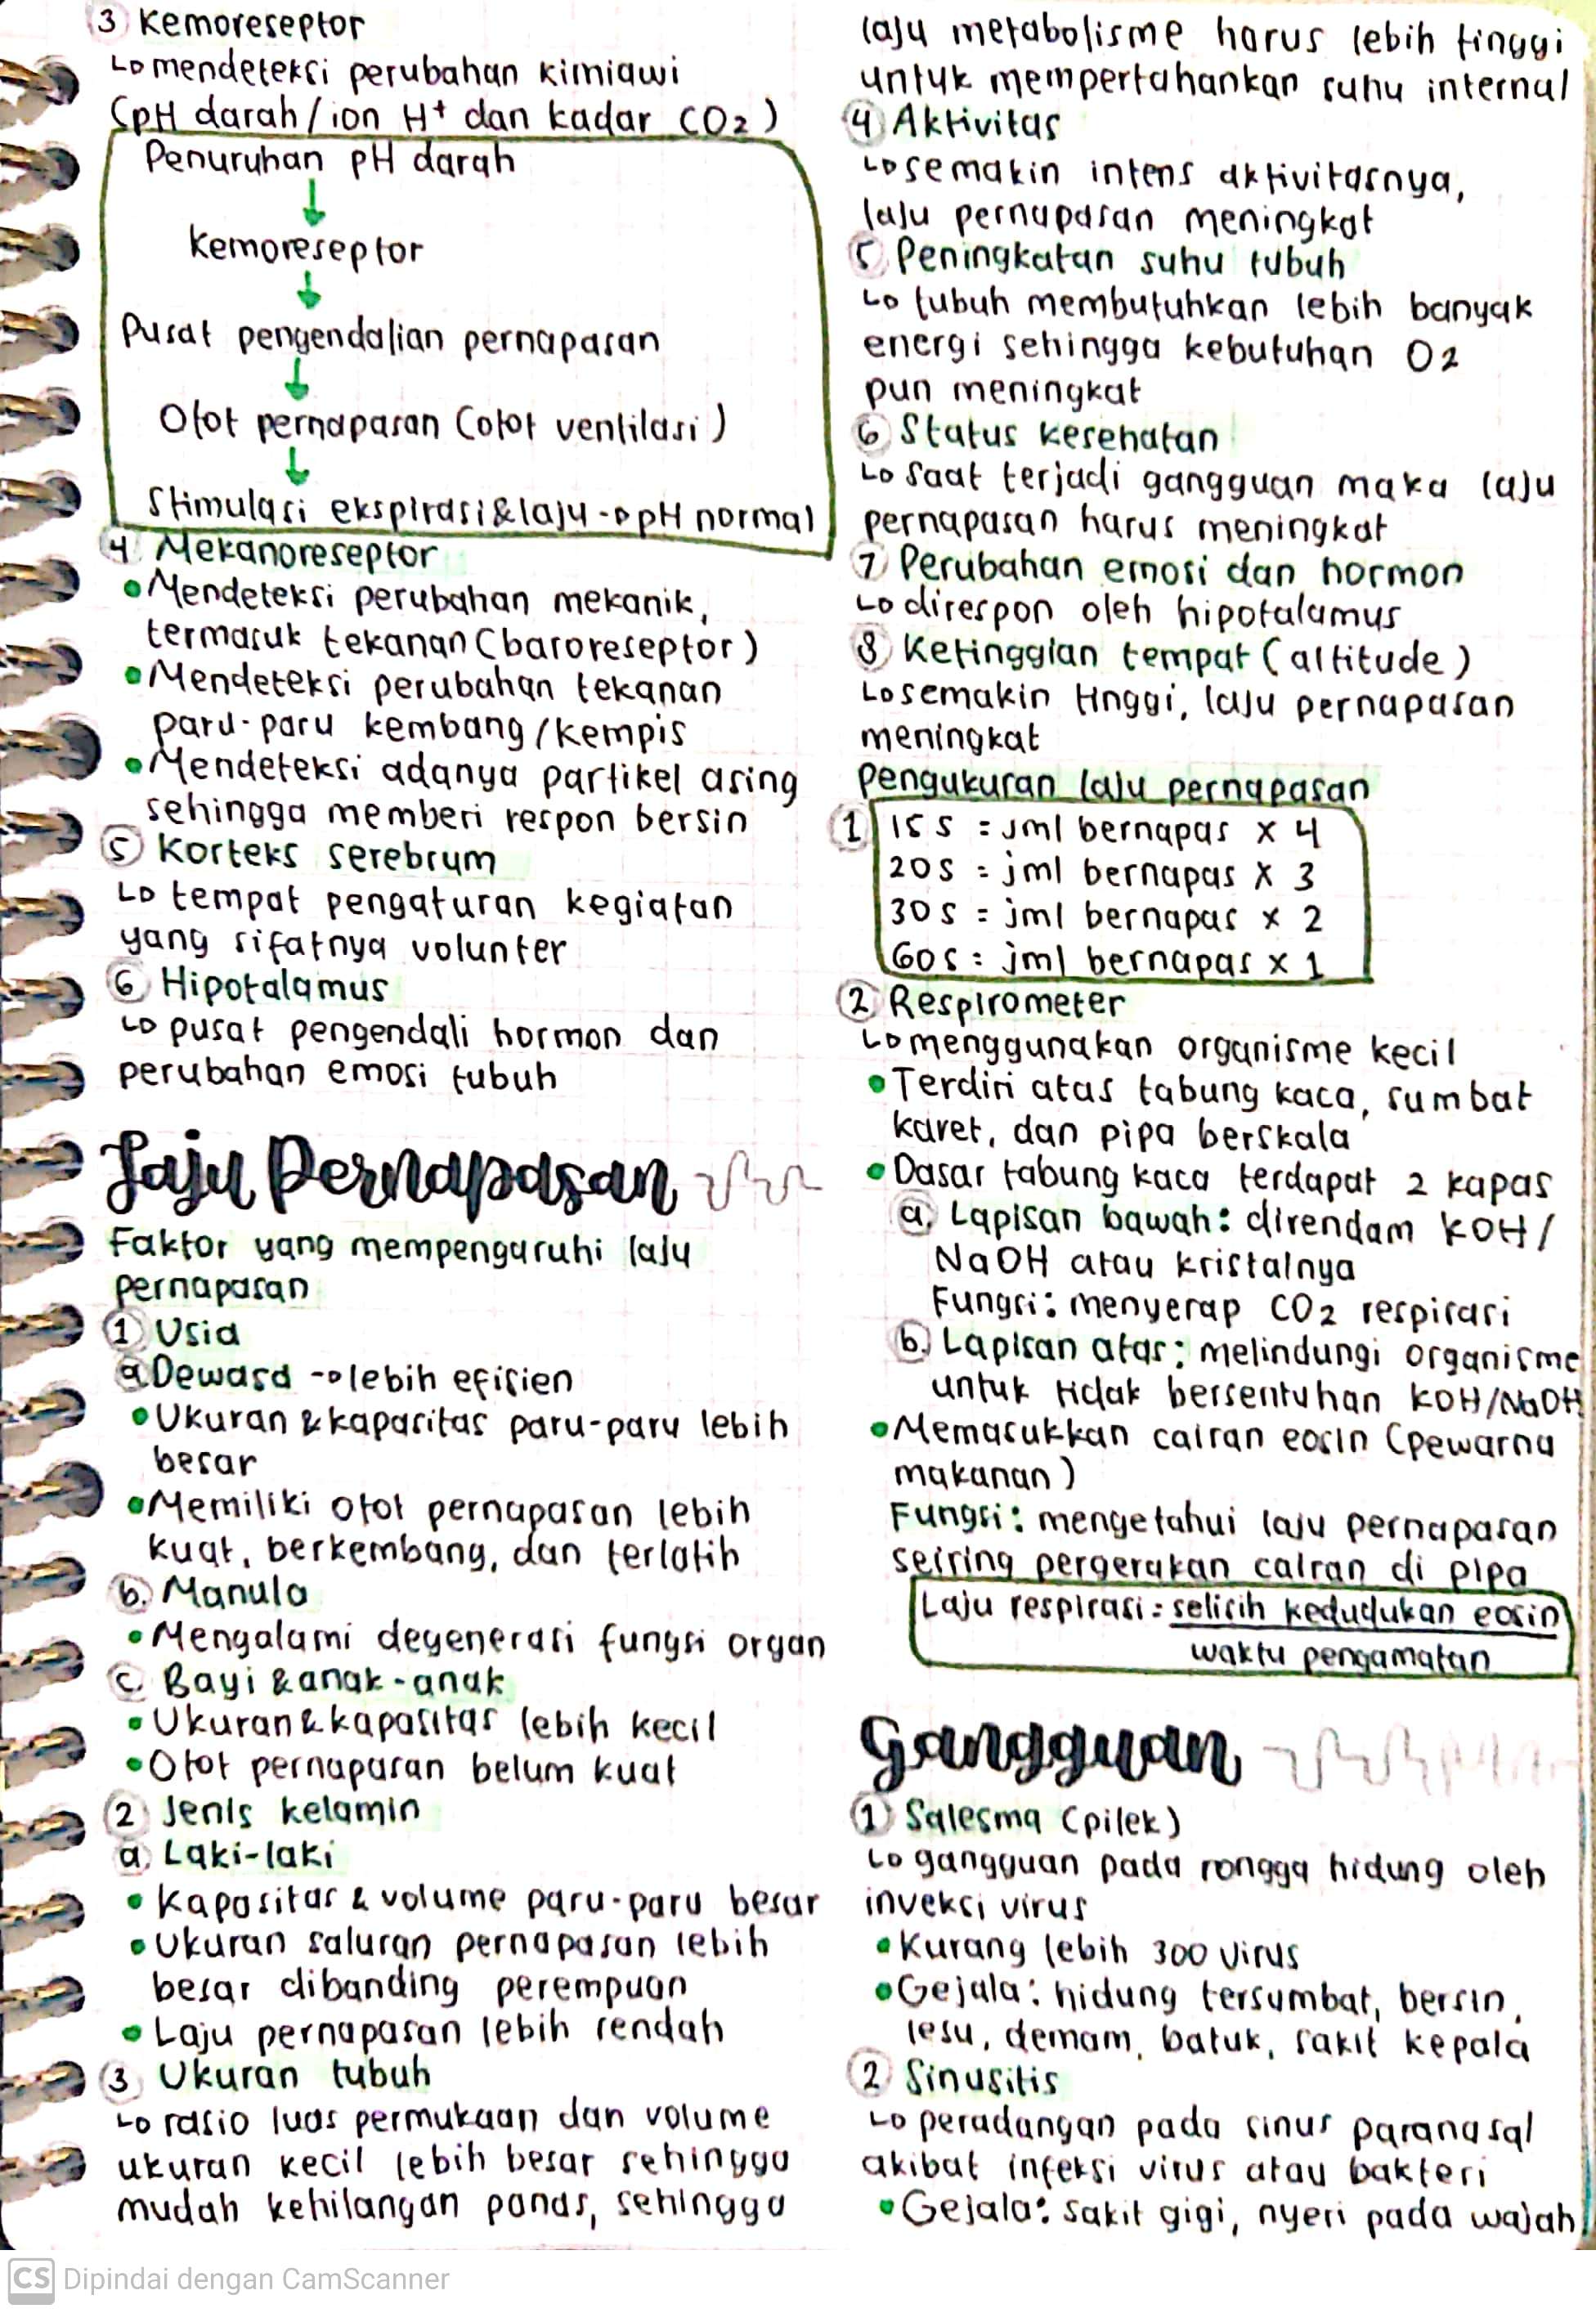 3 Kemoreseptor
↳ mendeteksi perubahan kimiawi
(pH darah/ion H+ dan kadar CO2)
Penuruhan pH darah
↓
Kemoreseptor
↓
Pusat pengendalian pernapasan
↓
Otot pernapasan (otot ventilasi)
↓
Stimulasi ekspirasi & laju → pH normal
4. Mekanoreseptor
• Mendeteksi perubahan mekanik,
termasuk tekanan (baroreseptor)
• Mendeteksi perubahan tekanan
paru-paru kembang/kempis
• Mendeteksi adanya partikel asing
sehingga memberi respon bersin
5 Korteks serebrum
↳ tempat pengaturan kegiatan
yang sifatnya volunter
6 Hipotalamus
↳ pusat pengendali hormon dan
perubahan emosi tubuh
Laju Pernapasan
Faktor yang mempengaruhi laju
pernapasan
1 Usia
a Dewasa → lebih efisien
• Ukuran & kapasitas paru-paru lebih
besar
• Memiliki otot pernapasan lebih
kuat, berkembang, dan terlatih
b. Manula
• Mengalami degenerasi fungsi organ
c. Bayi & anak-anak
• Ukuran & kapasitas lebih kecil
• Otot pernapasan belum kuat
2 Jenis kelamin
a. Laki-laki
• Kapasitas & volume paru-paru besar
• Ukuran saluran pernapasan lebih
besar dibanding perempuan
• Laju pernapasan lebih rendah
3 Ukuran tubuh
↳ rasio luas permukaan dan volume
ukuran kecil lebih besar sehingga
mudah kehilangan panas, sehingga
laju metabolisme harus lebih tinggi
untuk mempertahankan suhu internal
4 Aktivitas
↳ semakin intens aktivitasnya,
laju pernapasan meningkat
5 Peningkatan suhu tubuh
↳ tubuh membutuhkan lebih banyak
energi sehingga kebutuhan O2
pun meningkat
6 Status kesehatan
↳ saat terjadi gangguan maka laju
pernapasan harus meningkat
7 Perubahan emosi dan hormon
↳ direspon oleh hipotalamus
8 Ketinggian tempat (altitude)
↳ semakin tinggi, laju pernapasan
meningkat
Pengukuran laju pernapasan
1 15 s = jml bernapas x 4
20 s = jml bernapas x 3
30 s = jml bernapas x 2
60 s = jml bernapas x 1
2 Respirometer
↳ menggunakan organisme kecil
• Terdiri atas tabung kaca, sumbat
karet, dan pipa berskala
• Dasar tabung kaca terdapat 2 kapas
a. Lapisan bawah: direndam KOH/
NaOH atau kristalnya
Fungsi: menyerap CO2 respirasi
b. Lapisan atas: melindungi organisme
untuk tidak bersentuhan KOH/NaOH
• Memasukkan cairan eosin (pewarna
makanan)
Fungsi: mengetahui laju pernapasan
seiring pergerakan cairan di pipa
Laju respirasi = selisih kedudukan eosin
waktu pengamatan
Gangguan
1 Salesma (pilek)
↳ gangguan pada rongga hidung oleh
inveksi virus
• Kurang lebih 300 virus
• Gejala: hidung tersumbat, bersin,
lesu, demam, batuk, sakit kepala
2 Sinusitis
↳ peradangan pada sinus paranasal
akibat infeksi virus atau bakteri
• Gejala: sakit gigi, nyeri pada wajah
CS Dipindai dengan CamScanner